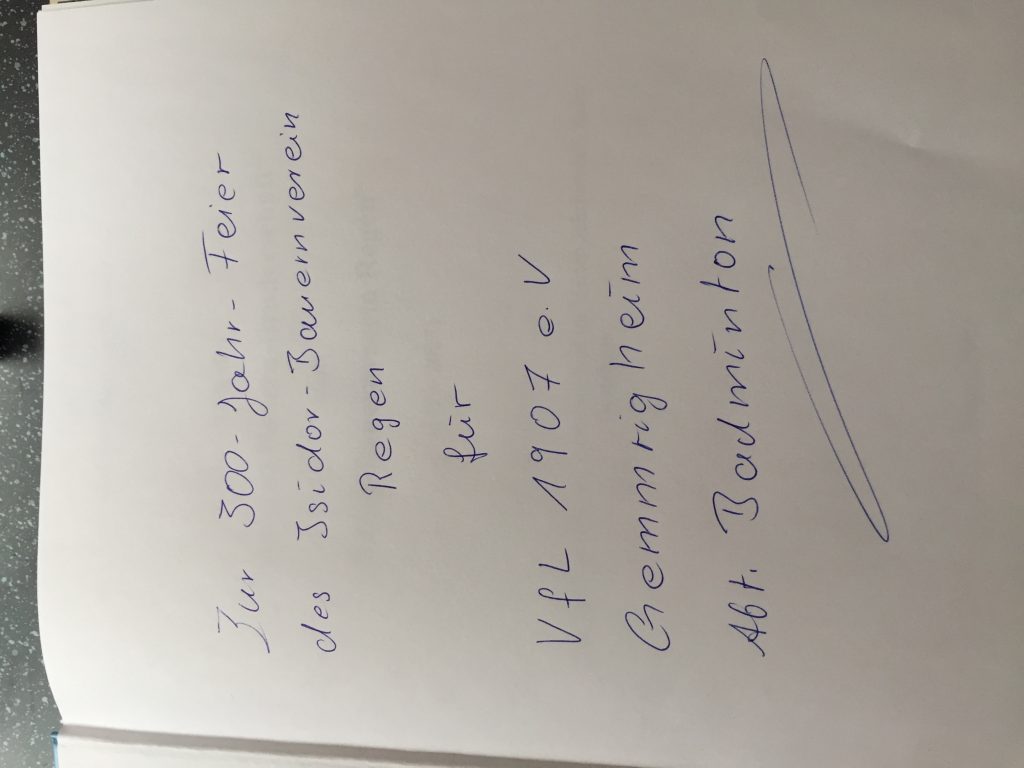 Zur 300-Jahr-Feier
des Isidor-Bauernverein
Regen
für
VfL 1907 e.V
Gemmrigheim
Abt. Badminton